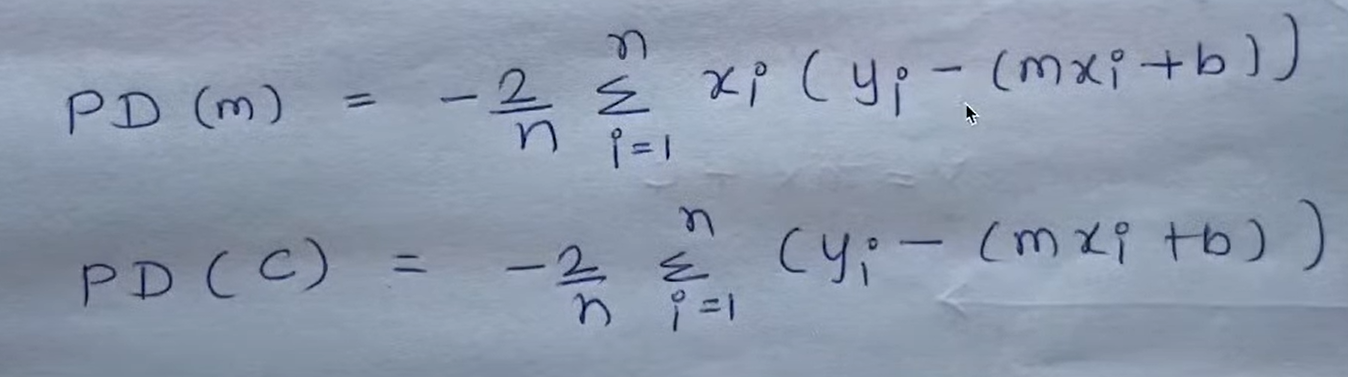 PD (m) = -2/n Σ_{i=1}^{n} x_i (y_i - (mx_i + b))
PD (C) = -2/n Σ_{i=1}^{n} (y_i - (mx_i + b))